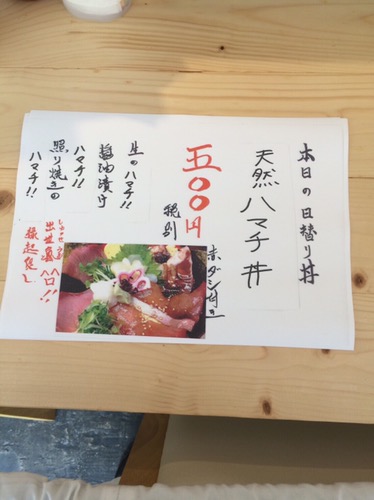 本日の日替り丼
天然ハマチ丼
五〇〇円
税別
赤ダシ付き
生のハマチ!!
醤油漬け
ハマチ!!
照り焼きの
ハマチ!!
出世魚
縁起良し